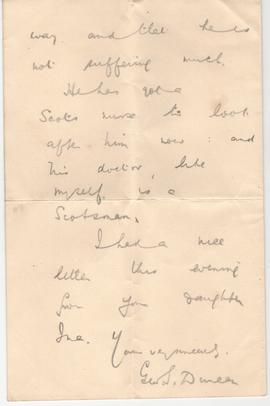 way and that he is
not suffering much.
He has got a
Scots nurse to look
after him now : and
his doctor, like
myself, is a
Scotsman.
I had a nice
letter this evening
from your daughter
Ina. Yours very sincerely,
Geo. S. Duncan